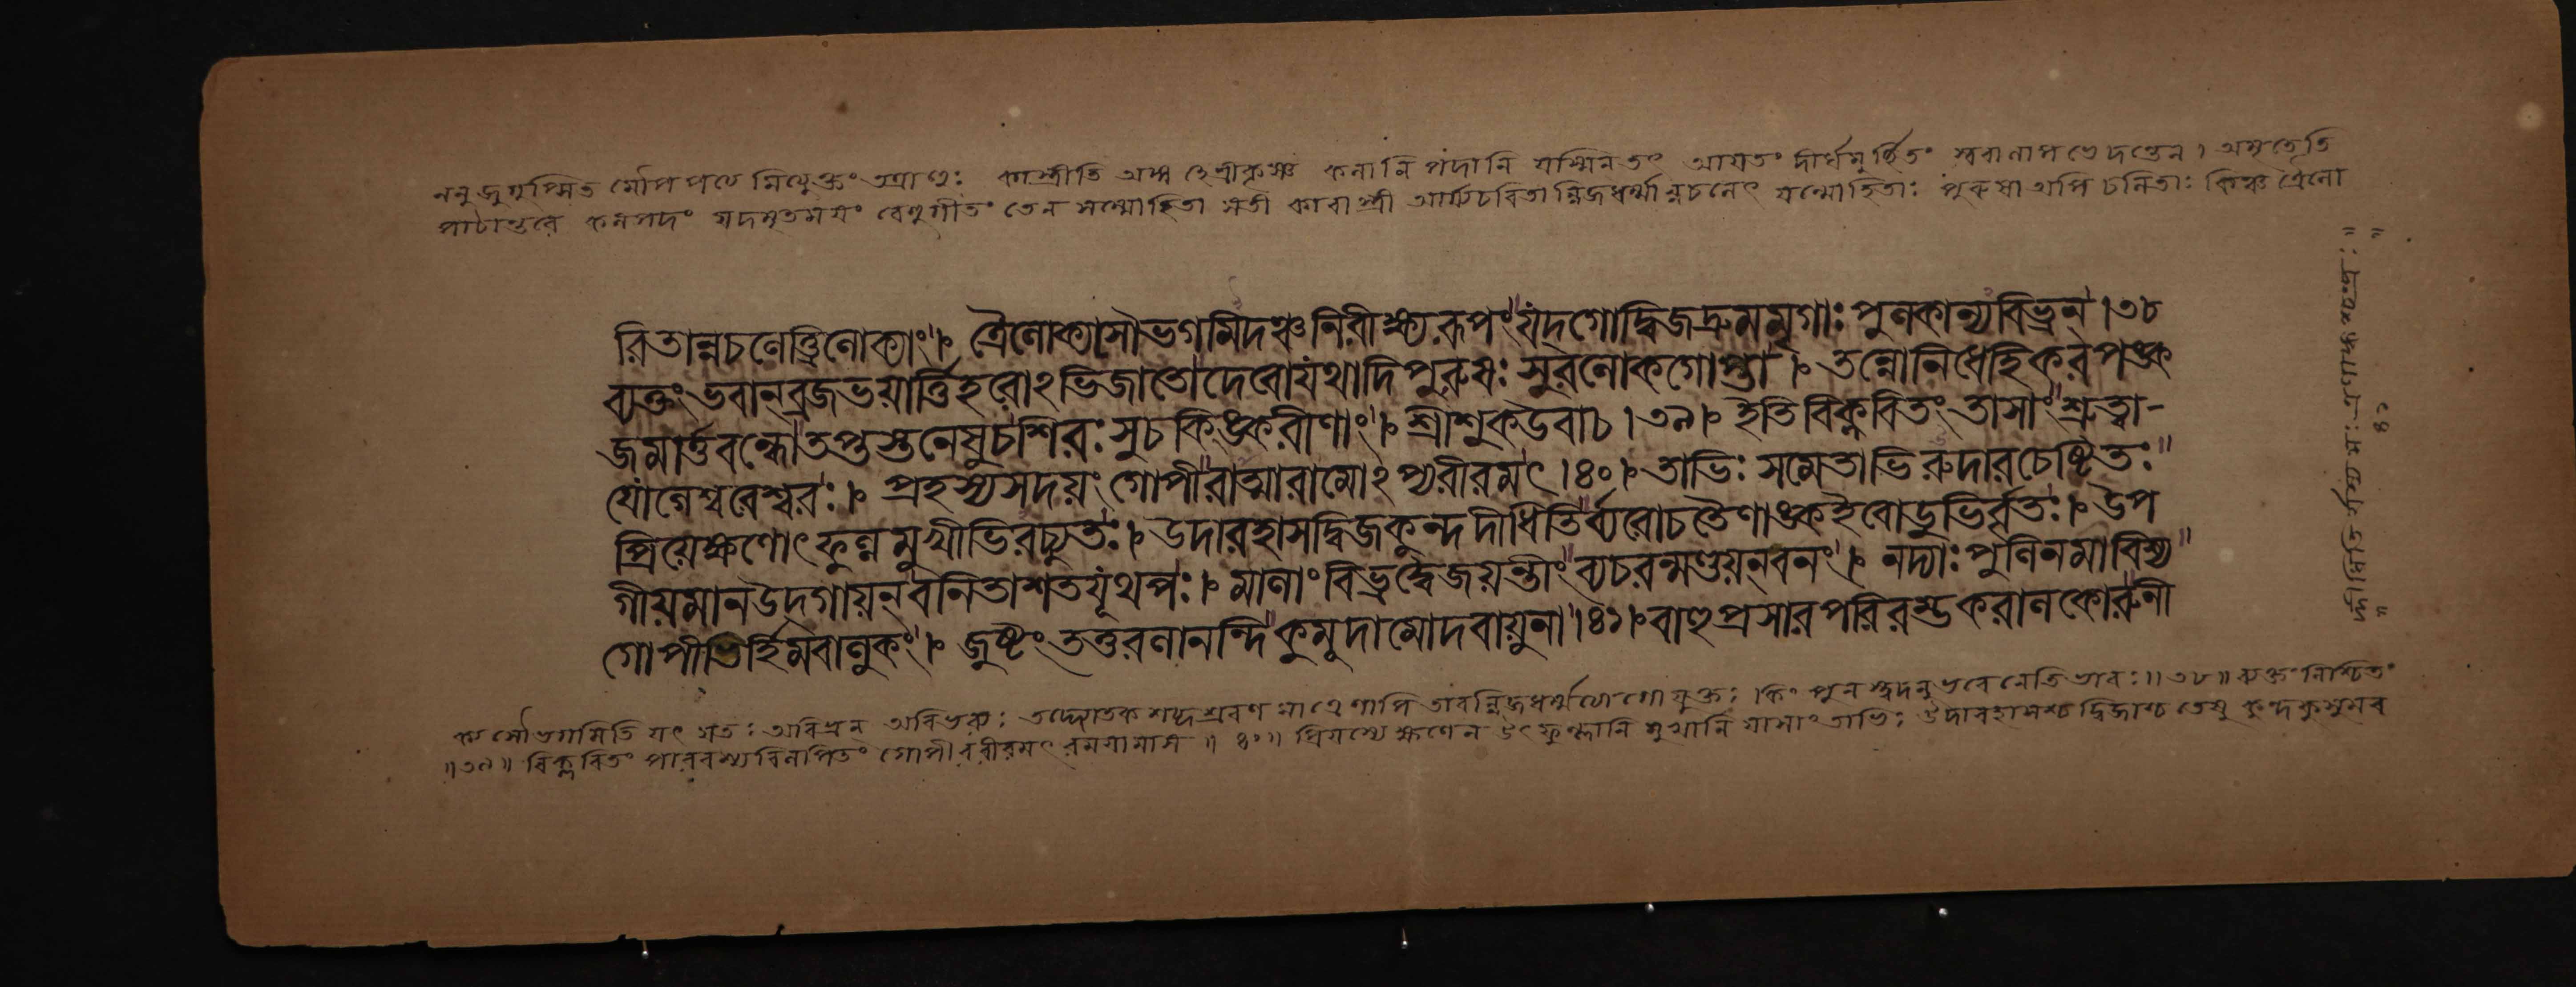 ননুজুগুপ্সিত মৌপপত্যে মিত্যুক্তং তত্রাহুঃ কাস্ত্রীতি অঙ্গ হে শ্রীকৃষ্ণ কলানি পদানি যস্মিন্ তৎ আয়তং দীর্ঘমূর্চ্ছিতং স্বরালাপভেদস্তেন। অমৃতেতি
পাঠান্তরে কলপদং যদমৃতময়ং বেণুগীতং তেন সম্মোহিতা সতী কাবাস্ত্রী আর্য্যচরিতান্নিজধর্ম্মান্নচলেৎ যন্মোহিতাঃ পুরুষাঅপি চলিতাঃ কিঞ্চ ত্রৈলো
রিতান্নচলেত্ত্রিলোক্যাং। ত্রৈলোক্যসৌভগমিদঞ্চনিরীক্ষ্যরূপং যদ্গোদ্বিজদ্রুমমৃগাঃ পুলকান্যবিভ্রন্।৩৮
ব্যক্তং ভবান্ ব্রজভয়ার্ত্তিহরোঽভিজাতো দেবোযথাদিপুরুষঃ সুরলোকগোপ্তা। তন্নোনিধেহিকরপঙ্ক
জমার্ত্তবন্ধোতপ্তস্তনেষুচশিরঃসুচকিঙ্করীণাং। শ্রীশুকউবাচ।৩৯। ইতিবিক্লবিতং তাসাং শ্রুত্বা-
যোগেশ্বরেশ্বরঃ। প্রহস্যসদয়ং গোপীরাত্মারামোঽপ্যরীরমৎ।৪০। তাভিঃ সমেতাভিরুদারচেষ্টিতঃ
প্রিয়েক্ষণোৎফুল্লমুখীভিরচ্যুতঃ। উদারহাসদ্বিজকুন্দদীধিতির্ব্যরোচতৈণাঙ্কইবোডুভির্বৃতঃ। উপ
গীয়মানউদ্গায়ন্ বনিতাশতযূথপঃ। মালাং বিভ্রদ্বৈজয়ন্তীং ব্যচরন্মণ্ডয়ন্বনং। নদ্যাঃ পুলিনমাবিশ্য
গোপীভির্হিমবালুকং। জুষ্টং তত্তরলানন্দিকুমুদামোদবায়ুনা।৪১। বাহুপ্রসারপরিরম্ভকরালকোরুনী
ক্য সৌভগমিতি যৎ যতঃ অবিভ্রন্ অবিভরুঃ তদ্দ্যোতকশব্দশ্রবণ মাত্রেণাপি তাবন্নিজধর্ম্মত্যাগো যুক্তঃ কিং পুনস্ত্বদনুভবেনেতি ভাবঃ॥৩৮॥ ব্যক্তং নিশ্চিতং
॥৩৯॥ বিক্লবিতং পারবশ্যবিলপিতং গোপীররীরমৎ রময়ামাস ॥৪০॥ প্রিয়স্যেক্ষণেন উৎফুল্লানি মুখানি যাসাং তাভিঃ উদারহাসশ্চ দ্বিজাশ্চ তেষু কুন্দকুসুমব
৪১